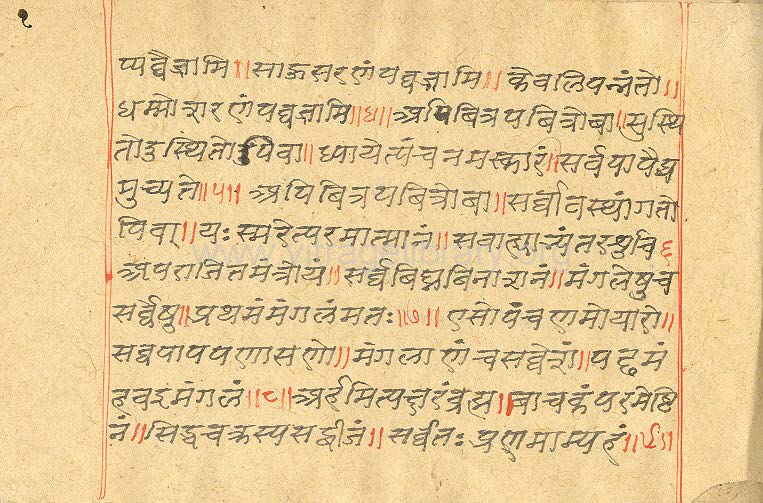 १
प्यव्वैज्जामि॥साऊसरणंपव्वज्जामि॥केवलिपन्नंतो॥
धम्मोशरणंपव्वज्जामि॥४॥अपिबित्रपबित्रोबा॥सुस्थि
तोदुस्थितोपिवा॥ध्यायेत्पंचनमस्कारं॥सर्वपापैप्र
मुच्यते॥५॥अपिबित्रपबित्रोबा॥सर्व्वावस्थांगतो
पिवा॥यःस्मरेत्परमात्मानं॥सवाह्याभ्यंतरशुचि६
अपराजितमंत्रोय॥सर्व्वबिघ्नबिनाशनं॥मंगलेषुच
सर्व्वेषु॥प्रथमंमंगलंमतः॥७॥एसोपंचणमोयारो॥
सव्वपापपणासणो॥मंगलाणंचसव्वेशं॥पढमं
हवइमंगलं॥८॥अर्हमित्यक्षरंब्रह्म॥बाचकंपरमेष्टि
नं॥सिद्धचक्रस्यसद्वीजं॥सर्व्वतःप्रणमाम्यहं॥९॥
www.vitragelibrary.org